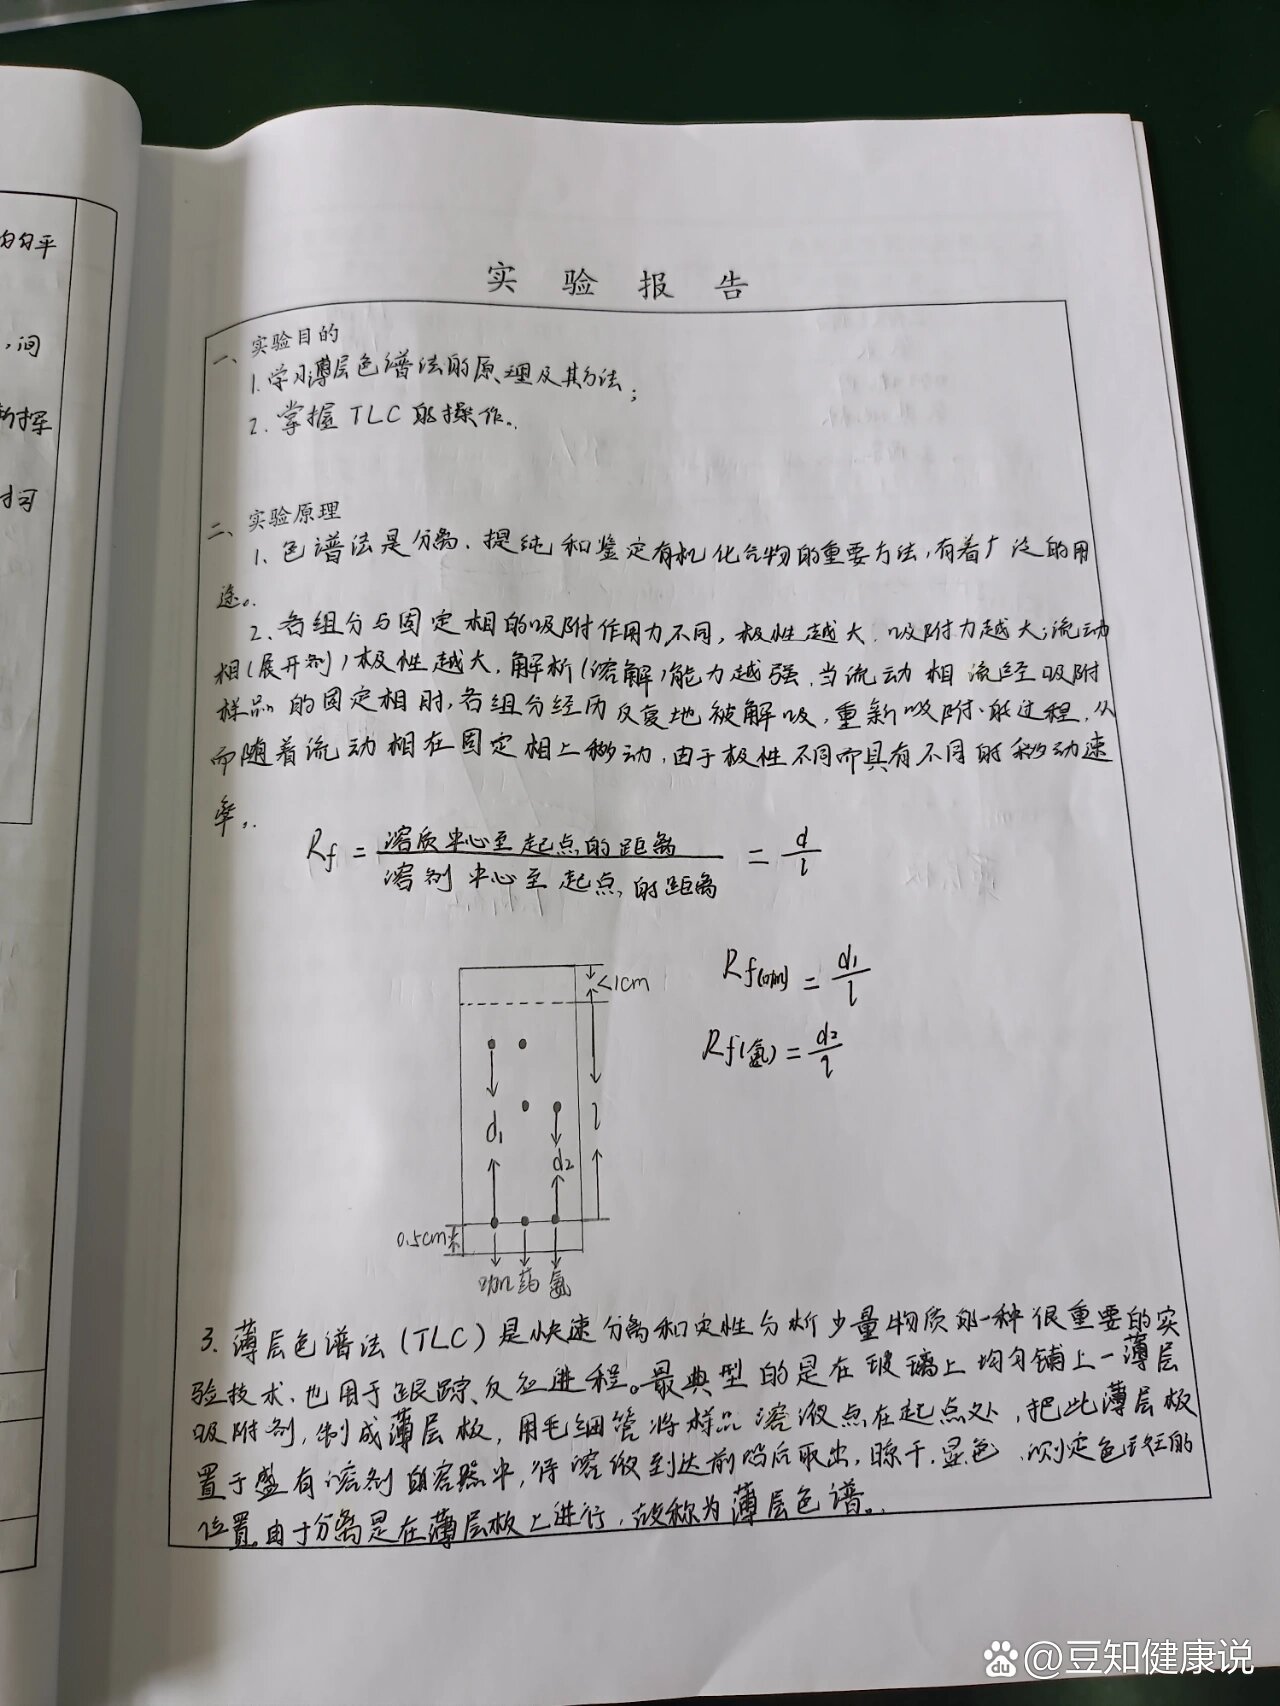 匀平
，间
扫
实验报告
一、实验目的
1.学习薄层色谱法的原理及其方法；
2.掌握TLC的操作。
二、实验原理
1.色谱法是分离、提纯和鉴定有机化合物的重要方法，有着广泛的用
途。
2.各组分与固定相的吸附作用力不同，极性越大，吸附力越大；流动
相(展开剂)极性越大，解析(溶解)能力越强，当流动相流经吸附
样品的固定相时，各组分经历反复地被解吸，重新吸附的过程，从
而随着流动相在固定相上移动，由于极性不同而具有不同的移动速
率。
Rf = 溶质中心至起点的距离 / 溶剂中心至起点的距离 = d / l
<1cm
Rf(咖) = d₁ / l
Rf(氨) = d₂ / l
d₁
l
d₂
0.5cm
咖 药 氨
3.薄层色谱法(TLC)是快速分离和定性分析少量物质的一种很重要的实
验技术，也用于跟踪反应进程。最典型的是在玻璃上均匀铺上一薄层
吸附剂，制成薄层板，用毛细管将样品溶液点在起点处，把此薄层板
置于盛有溶剂的容器中，待溶液到达前沿后取出，晾干，显色，测定色斑的
位置。由于分离是在薄层板上进行，故称为薄层色谱。
du @豆知健康说